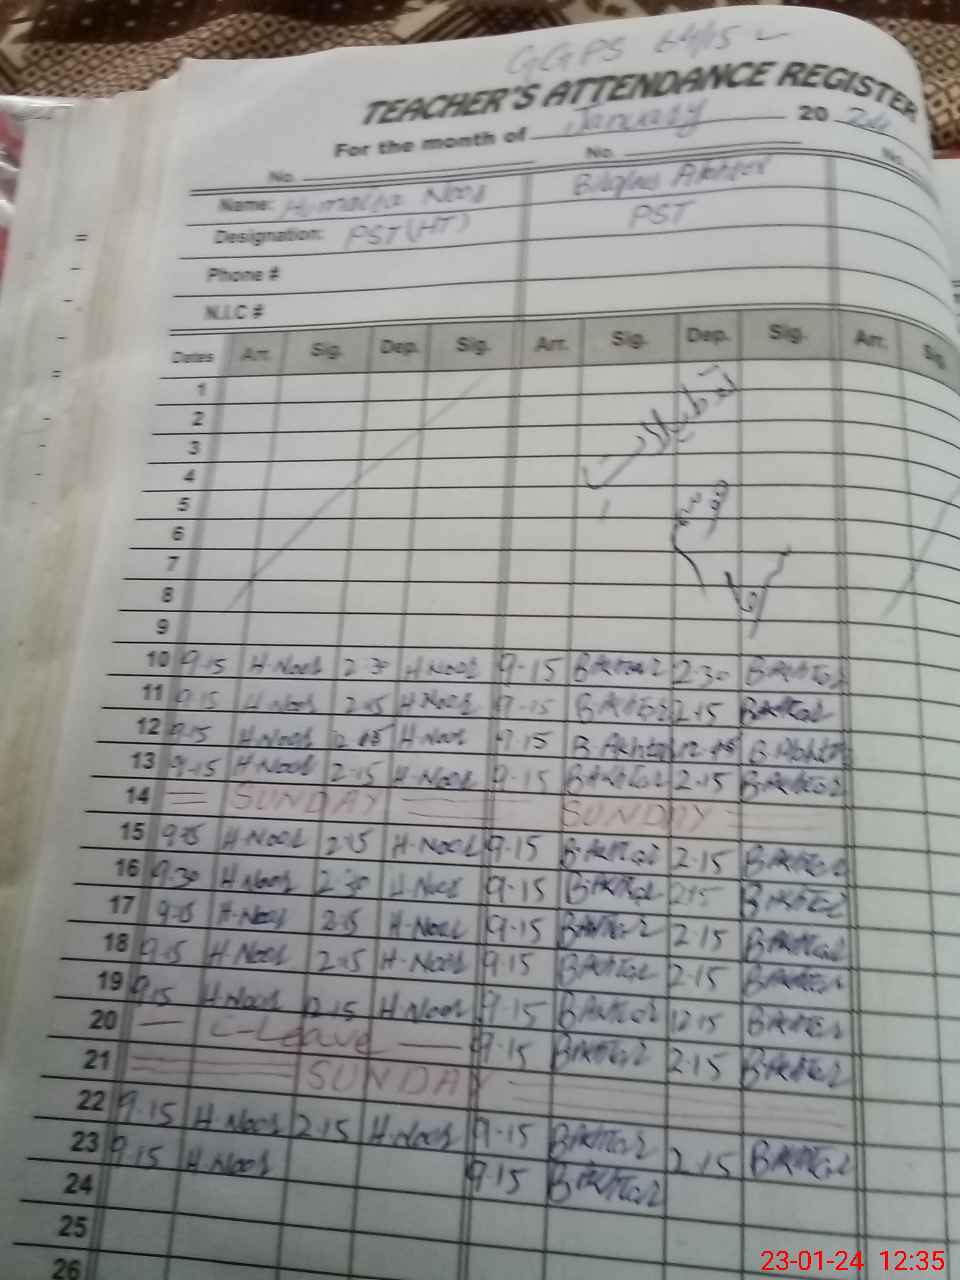 GGPS 64/15 L
TEACHER'S ATTENDANCE REGISTER
For the month of January 2024
No. No. No.
Name: Humaira Noor Bilqius Akhter
Designation: PST (HT) PST
Phone #
N.I.C #
Dates Arr. Sig. Dep. Sig. Arr. Sig. Dep. Sig. Arr. Sig.
1
2
3
4
5
6
7
8
9
10 9-15 H-Noor 2-30 H-Noor 9-15 BAkhter 2-30 BAkhter
11 9-15 H-Noor 2-15 H-Noor 9-15 BAkhter 2-15 BAkhter
12 9-15 H-Noor H-Noor 9-15 B.Akhter B.Akhter
13 9-15 H-Noor 2-15 H-Noor 9-15 BAkhter 2-15 BAkhter
14 SUNDAY SUNDAY
15 9-15 H-Noor 2-15 H-Noor 9-15 BAkhter 2-15 BAkhter
16 9-30 H-Noor 2-30 H-Noor 9-15 BAkhter 2-15 BAkhter
17 9-15 H-Noor 2-15 H-Noor 9-15 BAkhter 2-15 BAkhter
18 9-15 H-Noor 2-15 H-Noor 9-15 BAkhter 2-15 BAkhter
19 9-15 H-Noor 12-15 H-Noor 9-15 BAkhter 12-15 BAkhter
20 C-Leave 9-15 BAkhter 2-15 BAkhter
21 SUNDAY
22 9-15 H-Noor 2-15 H-Noor 9-15 BAkhter 2-15 BAkhter
23 9-15 H-Noor 9-15 BAkhter
24
25
26
23-01-24 12:35